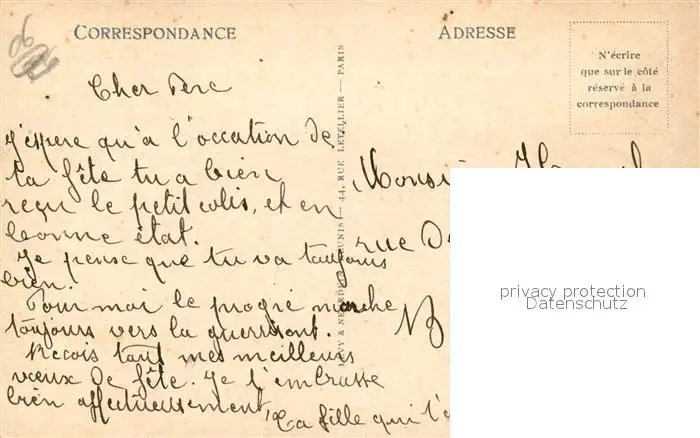 CORRESPONDANCE
ADRESSE
N'écrire
que sur le côté
réservé à la
correspondance
Cher Père
J'espere qu'a l'occation de
ta fête tu a bien
reçu le petit colis, et en
bonne état.
Je pense que tu va toujours
bien.
Pour moi le progré marche
toujours vers la guerrisont.
Recois tout mes meilleurs
vœux de fête. Je t'embrasse
bien affectueusement
Ta fille qui t'a
LEVY & NEURDEIN RÉUNIS — 44, RUE LETELLIER — PARIS
Monsi
rue D
privacy protection
Datenschutz